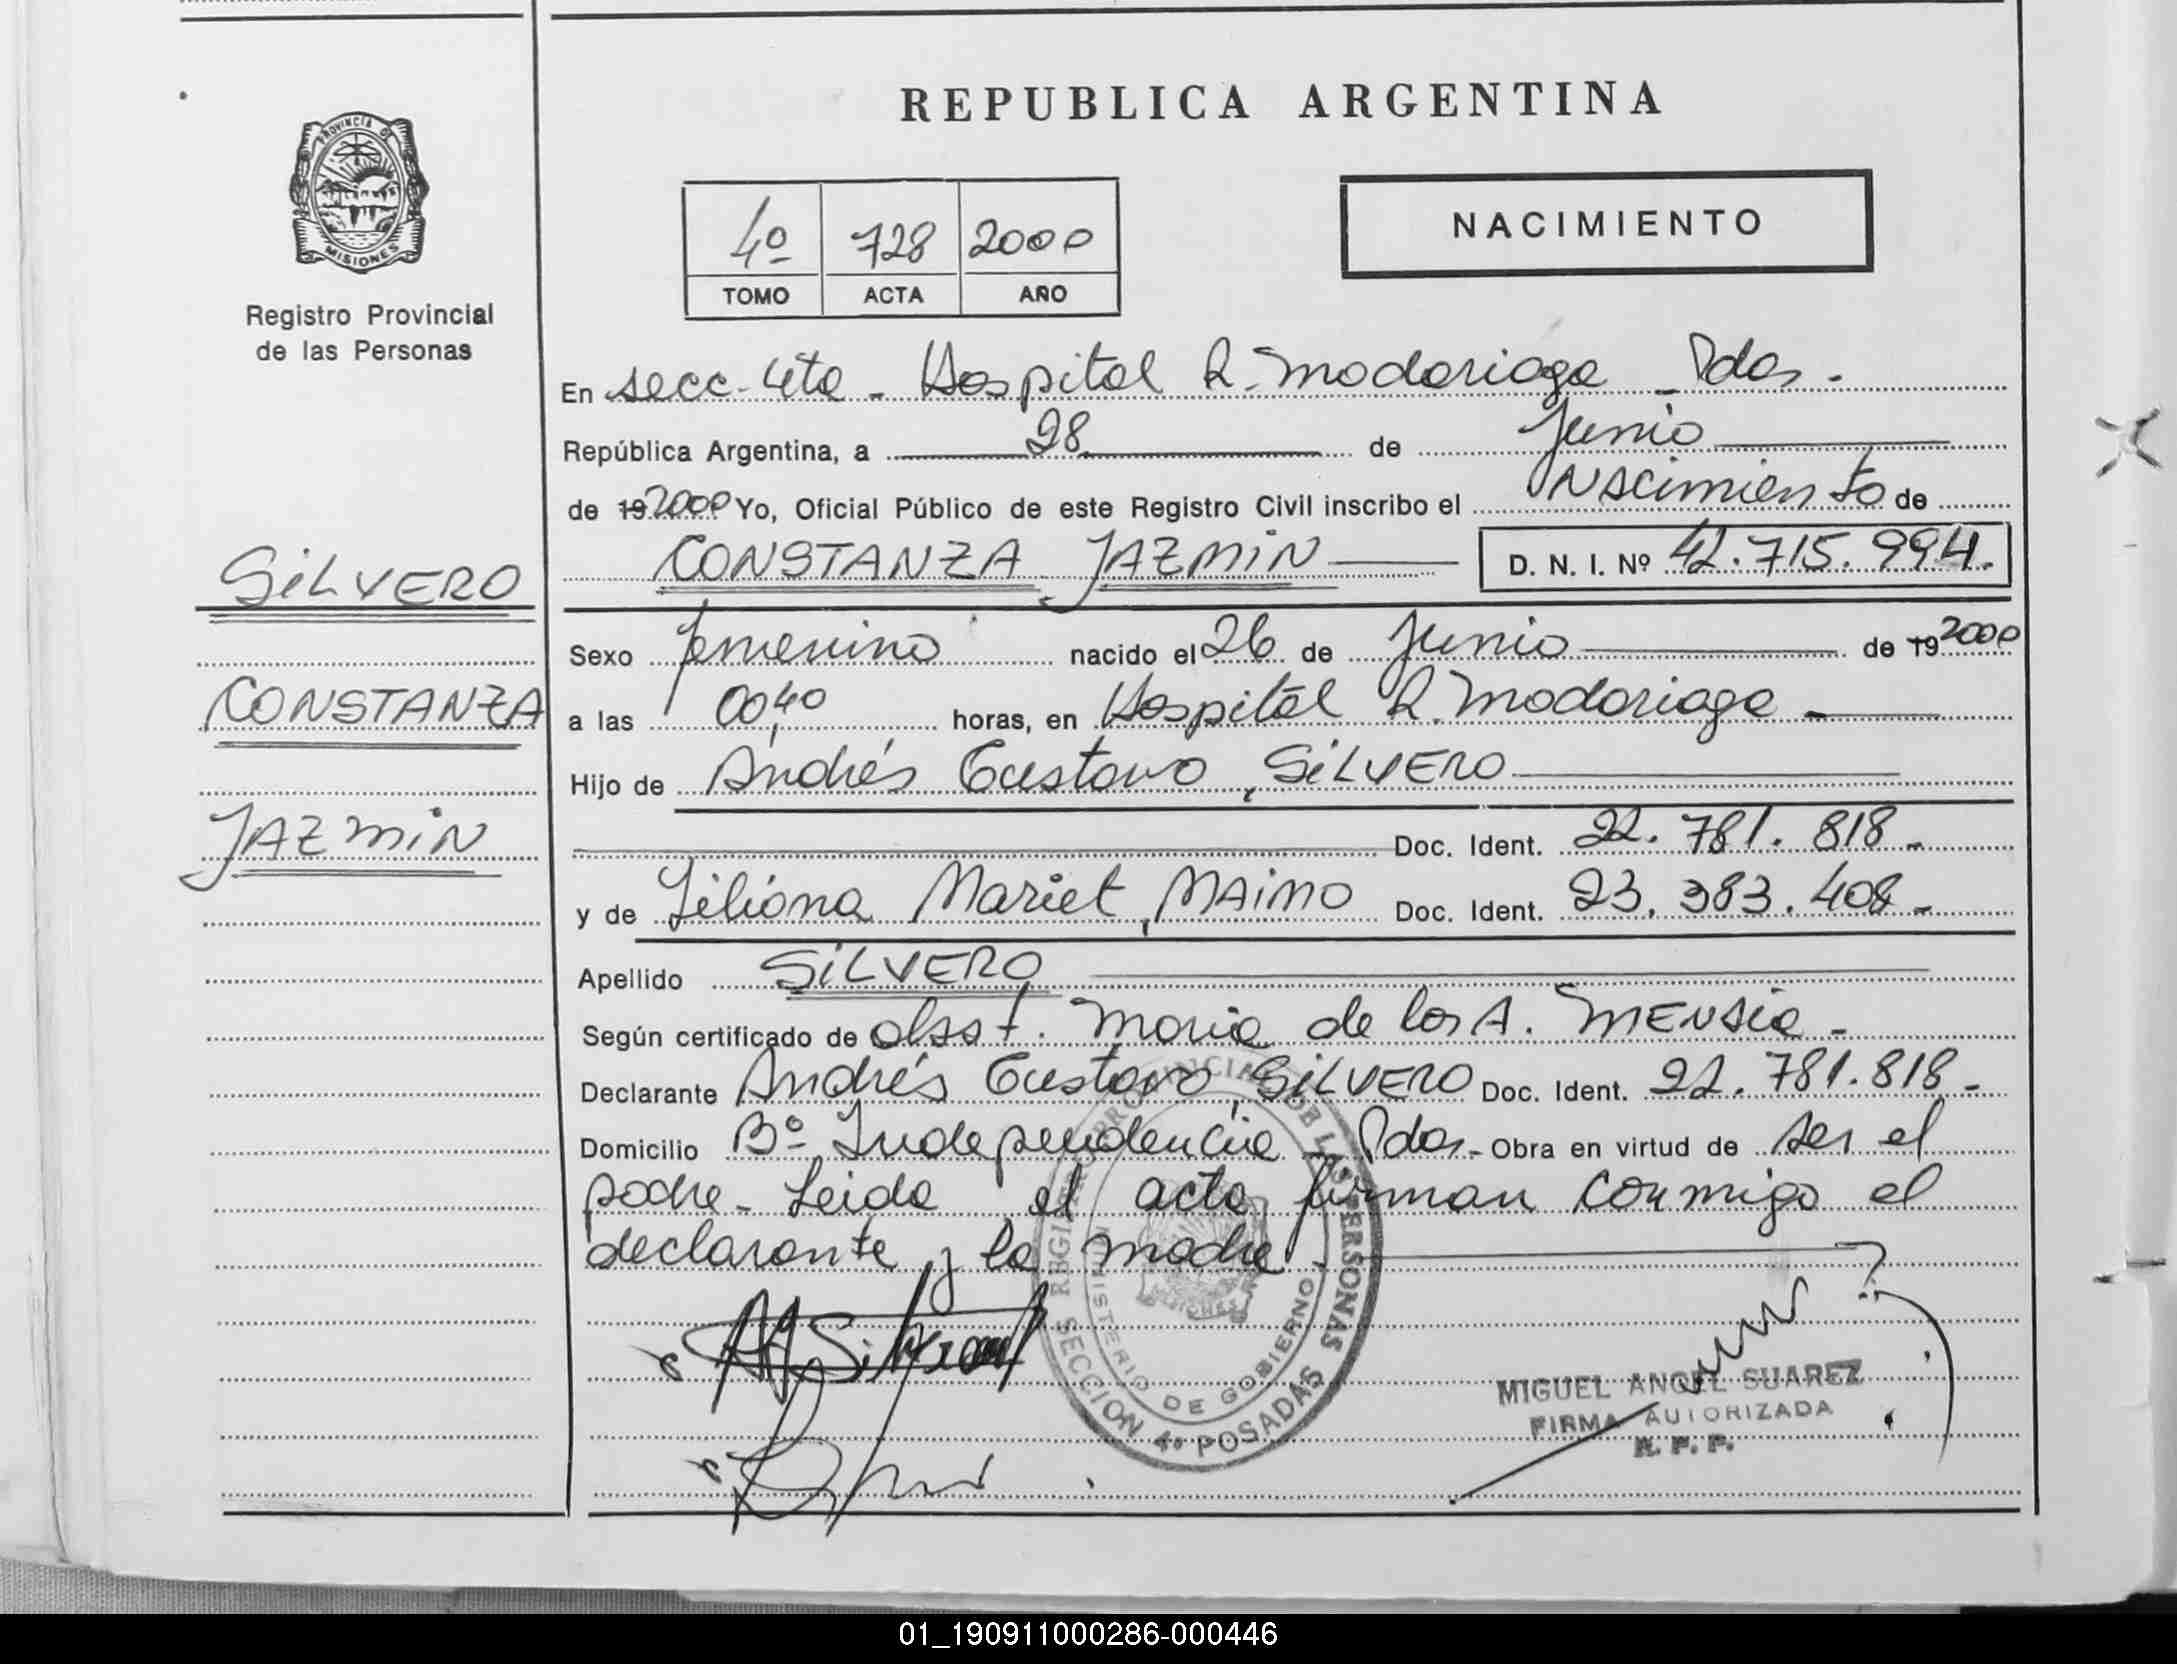 REPUBLICA ARGENTINA
PROVINCIA DE
MISIONES
Registro Provincial
de las Personas
4º 728 2000
TOMO ACTA AÑO
NACIMIENTO
En secc. 4ta - Hospital R. Madariaga - Pdas.
República Argentina, a 28 de Junio
de 19 2000 Yo, Oficial Público de este Registro Civil inscribo el Nacimiento de
CONSTANZA JAZMIN D. N. I. Nº 42.715.994.
SILVERO
CONSTANZA
JAZMIN
Sexo femenino nacido el 26 de Junio de 19 2000
a las 00,40 horas, en Hospital R. Madariaga -
Hijo de Andrés Gustavo, SILVERO
Doc. Ident. 22.781.818.-
y de Liliana Mariel, MAIMO Doc. Ident. 23.383.408.-
Apellido SILVERO
Según certificado de obst. Maria de los A. MENSia -
Declarante Andrés Gustavo, SILVERO Doc. Ident. 22.781.818.-
Domicilio Bº Independencia - Pdas.- Obra en virtud de ser el
padre - Leida el acta firman conmigo el
declarante y la madre.
REGISTRO PROVINCIAL DE LAS PERSONAS
SECCION 4º POSADAS
MINISTERIO DE GOBIERNO
MISIONES
MIGUEL ANGEL SUAREZ
FIRMA AUTORIZADA
R. P. P.
01_190911000286-000446